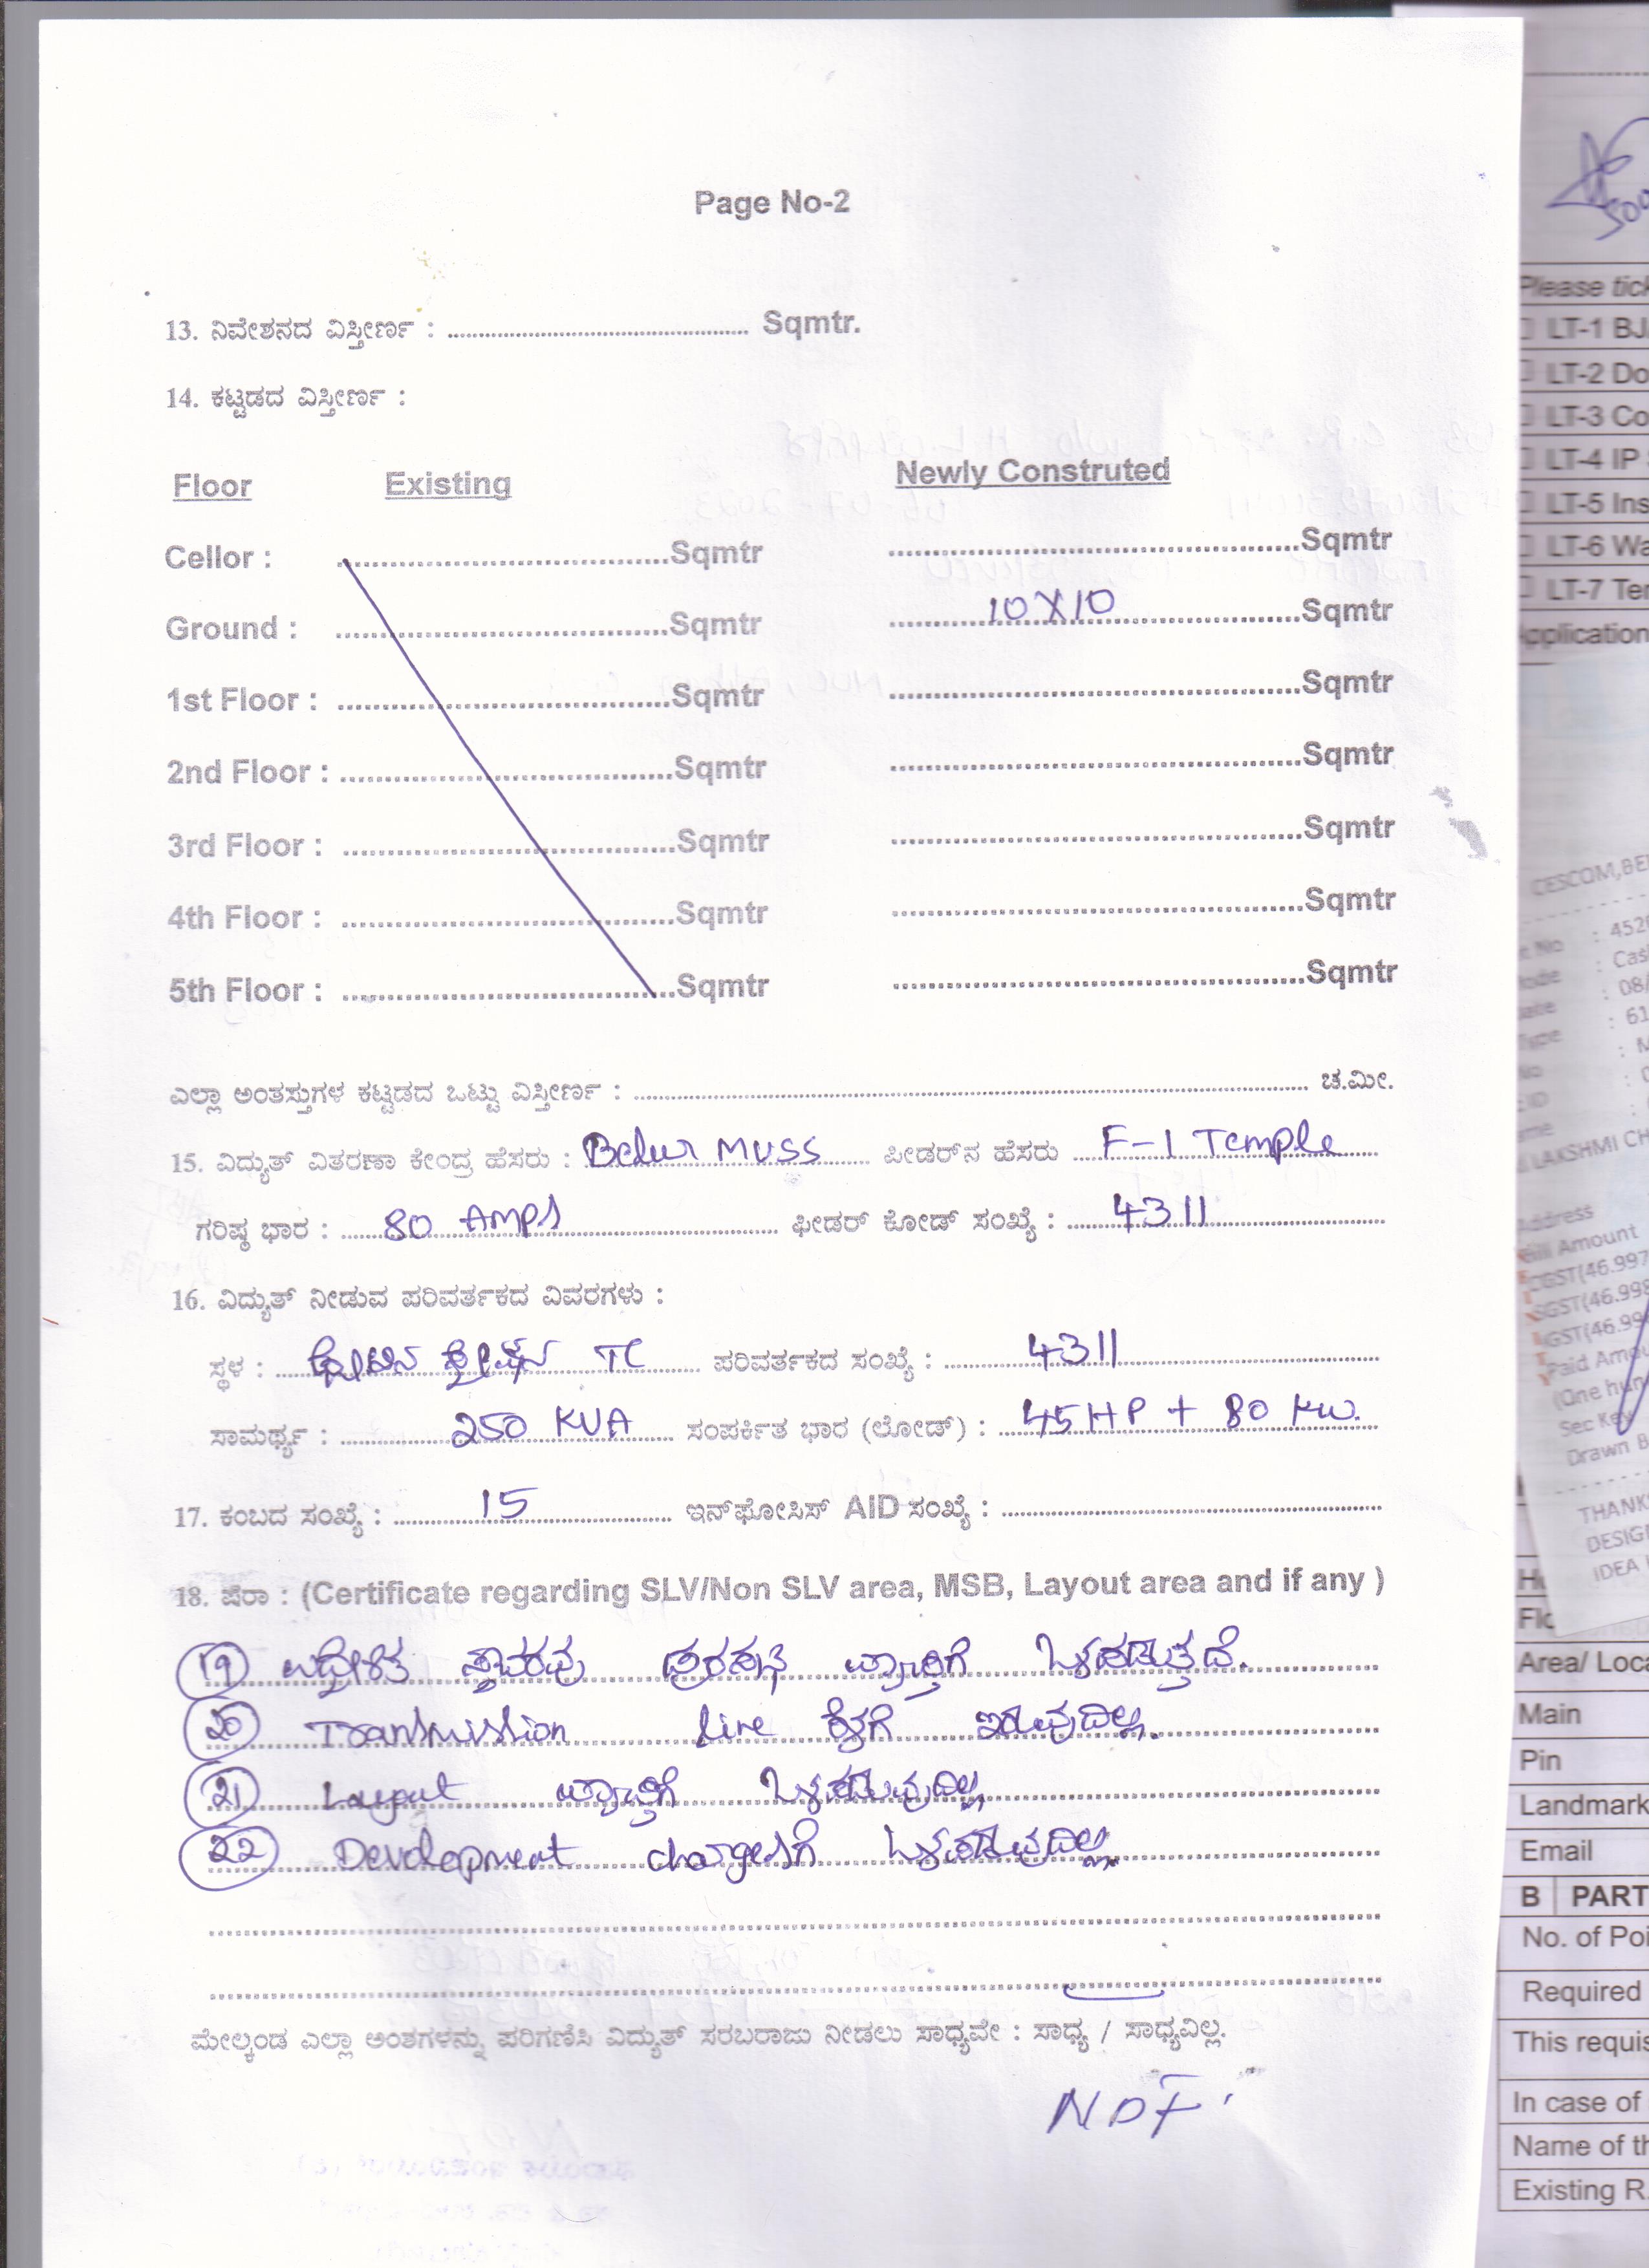 Page No-2
13. ನಿವೇಶನದ ವಿಸ್ತೀರ್ಣ : ........ Sqmtr.
14. ಕಟ್ಟಡದ ವಿಸ್ತೀರ್ಣ :
Floor Existing Newly Construted
Cellor : ........Sqmtr ........Sqmtr
Ground : ........Sqmtr 10X10 Sqmtr
1st Floor : ........Sqmtr ........Sqmtr
2nd Floor : ........Sqmtr ........Sqmtr
3rd Floor : ........Sqmtr ........Sqmtr
4th Floor : ........Sqmtr ........Sqmtr
5th Floor : ........Sqmtr ........Sqmtr
ಎಲ್ಲಾ ಅಂತಸ್ತುಗಳ ಕಟ್ಟಡದ ಒಟ್ಟು ವಿಸ್ತೀರ್ಣ : ........ ಚ.ಮೀ.
15. ವಿದ್ಯುತ್ ವಿತರಣಾ ಕೇಂದ್ರ ಹೆಸರು : Belur MUSS ಪೀಡರ್‌ನ ಹೆಸರು F-1 Temple
ಗರಿಷ್ಠ ಭಾರ : 80 AMPS ಫೀಡರ್ ಕೋಡ್ ಸಂಖ್ಯೆ : 4311
16. ವಿದ್ಯುತ್ ನೀಡುವ ಪರಿವರ್ತಕದ ವಿವರಗಳು :
ಸ್ಥಳ : TC ಪರಿವರ್ತಕದ ಸಂಖ್ಯೆ : 4311
ಸಾಮರ್ಥ್ಯ : 250 KVA ಸಂಪರ್ಕಿತ ಭಾರ (ಲೋಡ್) : 45HP + 80 KW.
17. ಕಂಬದ ಸಂಖ್ಯೆ : 15 ಇನ್‌ಫೋಸಿಸ್ AID ಸಂಖ್ಯೆ : ........
18. ಷರಾ : (Certificate regarding SLV/Non SLV area, MSB, Layout area and if any )
19 ಉದ್ದೇಶಿತ ಸ್ಥಾವರವು ಪುರಸಭೆ ವ್ಯಾಪ್ತಿಗೆ ಒಳಪಡುತ್ತದೆ.
20 Transmission line ಕೆಳಗೆ ಇರುವುದಿಲ್ಲ.
21 Layout ವ್ಯಾಪ್ತಿಗೆ ಒಳಪಡುವುದಿಲ್ಲ
22 Development chargesಗೆ ಒಳಪಡುವುದಿಲ್ಲ.
ಮೇಲ್ಕಂಡ ಎಲ್ಲಾ ಅಂಶಗಳನ್ನು ಪರಿಗಣಿಸಿ ವಿದ್ಯುತ್ ಸರಬರಾಜು ನೀಡಲು ಸಾಧ್ಯವೇ : ಸಾಧ್ಯ / ಸಾಧ್ಯವಿಲ್ಲ.
NDF
Please tick
LT-1 BJ
LT-2 Do
LT-3 Co
LT-4 IP
LT-5 Ins
LT-6 Wa
LT-7 Ter
pplication
CESCOM,BE
No : 452
: Cas
: 08/
Type : 61
LAKSHMI CH
Address
Bill Amount
CGST(46.997
SGST(46.998
GST(46.99
Paid Amou
(One hun
Sec Key
Drawn B
THANK
DESIG
IDEA
Area/ Loca
Main
Pin
Landmark
Email
B PART
No. of Poi
Required
This requis
In case of
Name of th
Existing R